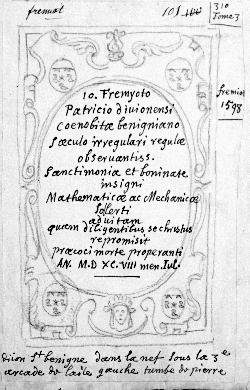 fremiot
101
310
Tome 3
fremiot
1598
IO. Fremyoto
Patricio diuionensi
Coenobitæ benigniano
Sæculo irregulari regulæ
obseruantiss.
Sanctimonia et bonitate
insigni
Mathematicæ ac Mechanicæ
Solerti
ad uitam
quam diligentibus se christus
repromisit
præcoci morte properanti
AN. M.D XC.VIII men. Iul.
diion St benigne dans la nef sous la 3e
arcade de l'aile gauche tumbe de pierre